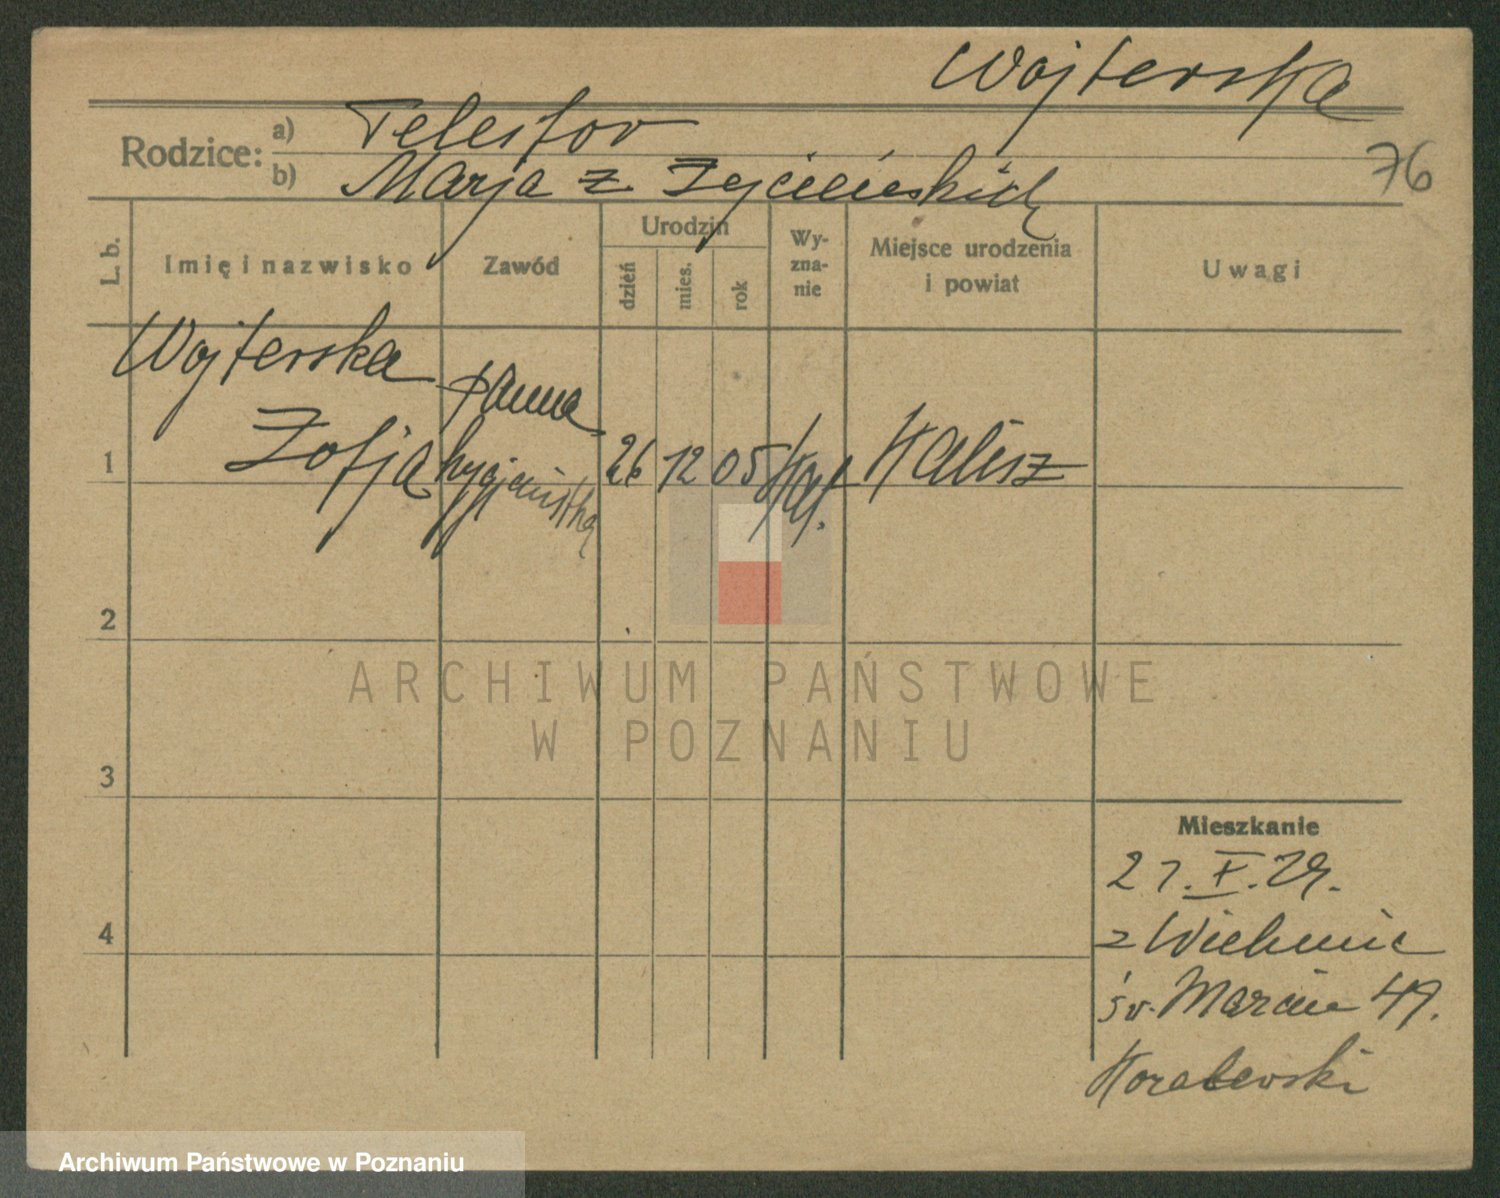 Wojterska
76
Rodzice:
a) Telesfor
b) Marja z
L. b.
Imię i nazwisko
Zawód
Urodzin
dzień
mies.
rok
Wy-
zna-
nie
Miejsce urodzenia
i powiat
Uwagi
Wojterska panna
1 Zofja hygjenistka 26 12 05 kat. Kalisz
2
3
4
Mieszkanie
27. V. 29.
z
św. Marcin 49.
Koralewski
ARCHIWUM PAŃSTWOWE
W POZNANIU
Archiwum Państwowe w Poznaniu